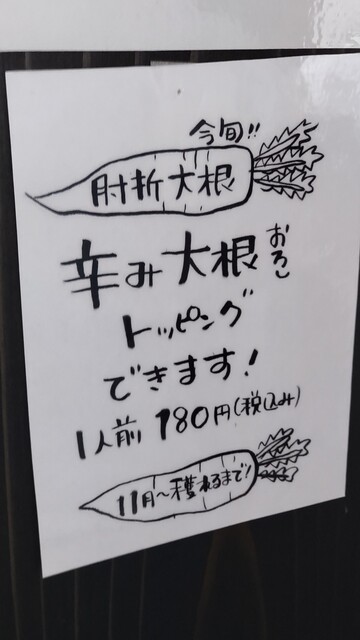 今旬!!
肘折大根
辛み大根おろし
トッピング
できます!
1人前 180円(税込み)
11月～穫れるまで!